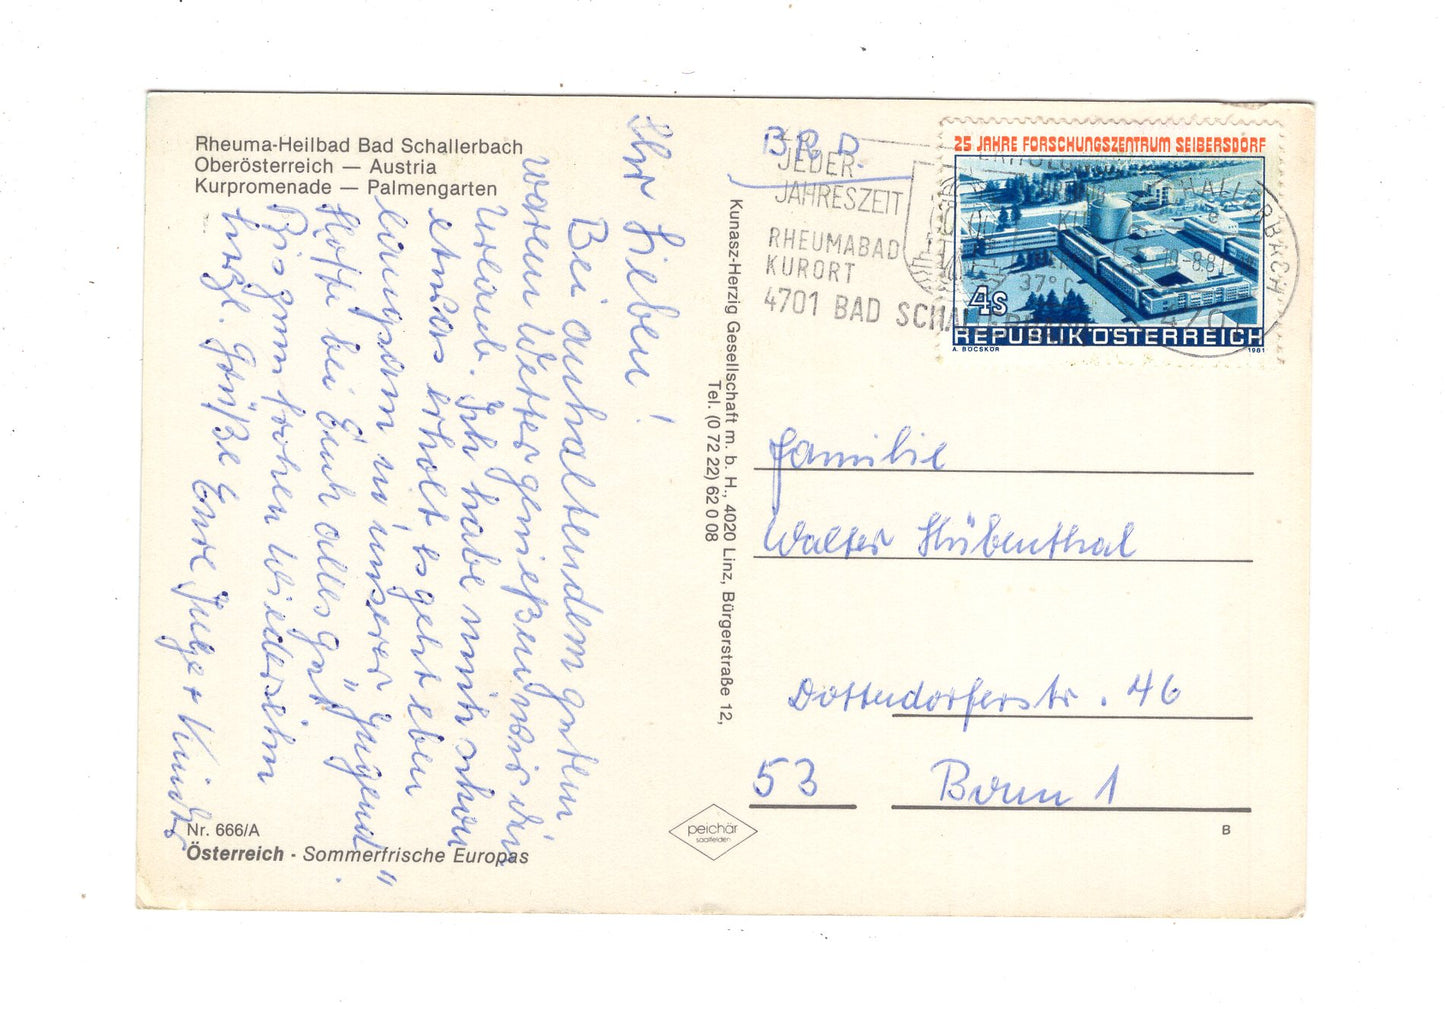 Rheuma-Heilbad Bad Schallerbach
Oberösterreich — Austria
Kurpromenade — Palmengarten
Ihr Lieben!
Bei anhaltendem guten
warem Wetter genießen wir den
Urlaub. Ich habe mich schon
etwas erholt es geht eben
langsam in unserer "Jugend"
Hoffe bei Euch alles gut.
Bis zum frohen Wiedersehn
herzl. Grüße Eure
Nr. 666/A
Österreich - Sommerfrische Europas
Kunasz-Herzig Gesellschaft m. b. H., 4020 Linz, Bürgerstraße 12,
Tel. (0 72 22) 62 0 08
peichär
saalfelden
BRD.
JEDER
JAHRESZEIT
RHEUMABAD
KURORT
4701 BAD SCHALLERBACH
37° C
25 JAHRE FORSCHUNGSZENTRUM SEIBERSDORF
4S
REPUBLIK ÖSTERREICH
A. BÖCSKÖR 1981
Familie
Walter Hübenthal
Dottendorferstr. 46
53 Bonn 1
B